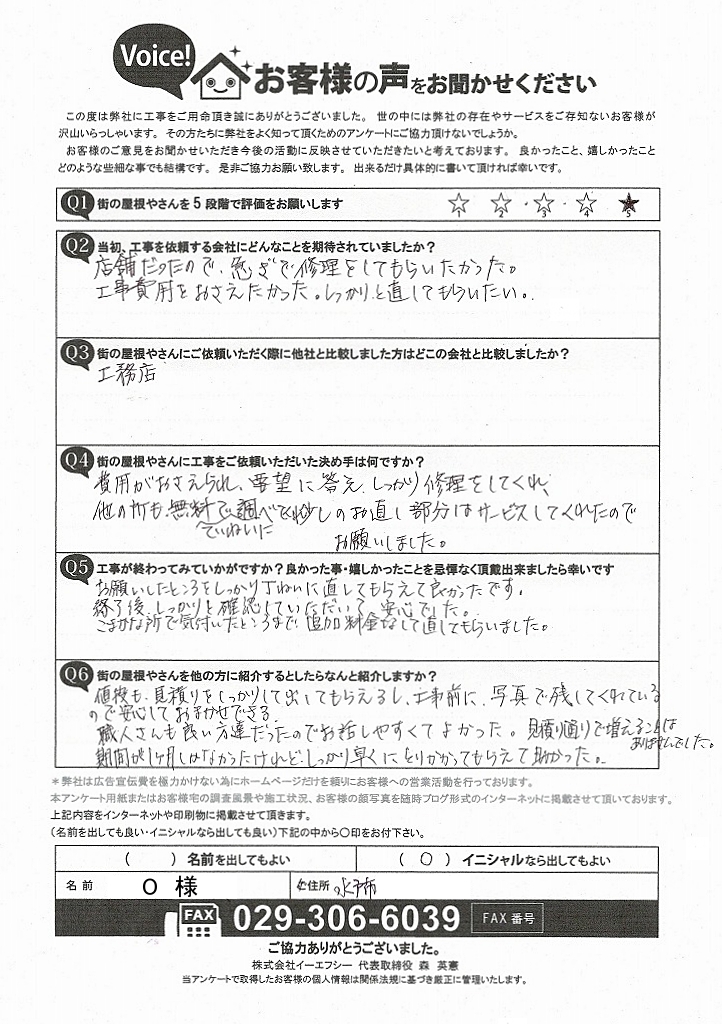 Voice!
お客様の声をお聞かせください
この度は弊社に工事をご用命頂き誠にありがとうございました。 世の中には弊社の存在やサービスをご存知ないお客様が
沢山いらっしゃいます。 その方たちに弊社をよく知って頂くためのアンケートにご協力頂けないでしょうか。
お客様のご意見をお聞かせいただき今後の活動に反映させていただきたいと考えております。 良かったこと、嬉しかったこと
どのような些細な事でも結構です。 是非ご協力お願い致します。 出来るだけ具体的に書いて頂ければ幸いです。
Q1 街の屋根やさんを5段階で評価をお願いします
1 2 3 4 5
Q2 当初、工事を依頼する会社にどんなことを期待されていましたか?
店舗だったので、急ぎで修理をしてもらいたかった。
工事費用をおさえたかった。しっかりと直してもらいたい。
Q3 街の屋根やさんにご依頼いただく際に他社と比較しました方はどこの会社と比較しましたか?
工務店
Q4 街の屋根やさんに工事をご依頼いただいた決め手は何ですか?
費用がおさえられ、要望に答え、しっかり修理をしてくれ、
他の所も無料で調べて少しのお直し部分はサービスしてくれたので
ていねいに
お願いしました。
Q5 工事が終わってみていかがですか?良かった事・嬉しかったことを忌憚なく頂戴出来ましたら幸いです
お願いしたところをしっかり丁ねいに直してもらえて良かったです。
終了後、しっかりと確認していただいて、安心でした。
こまかな所で気付いたところまで、追加料金なしで直してもらいました。
Q6 街の屋根やさんを他の方に紹介するとしたらなんと紹介しますか?
値段も、見積りをしっかりして出してもらえるし、工事前に、写真で残してくれている
ので安心しておまかせできる。
職人さんも良い方達だったのでお話しやすくてよかった。見積り通りで増えることは
ありませんでした。
期間が1ヶ月しかなかったけれど、しっかり早くにとりかかってもらえて助かった。
*弊社は広告宣伝費を極力かけない為にホームページだけを頼りにお客様への営業活動を行っております。
本アンケート用紙またはお客様宅の調査風景や施工状況、お客様の顔写真を随時ブログ形式のインターネットに掲載させて頂いております。
上記内容をインターネットや印刷物に掲載させて頂きます。
(名前を出しても良い・イニシャルなら出しても良い)下記の中から〇印をお付下さい。
( ) 名前を出してもよい ( ○ ) イニシャルなら出してもよい
名前 O 様 ご住所 水戸市
FAX 029-306-6039 FAX番号
ご協力ありがとうございました。
株式会社イーエフシー 代表取締役 森 英憲
当アンケートで取得したお客様の個人情報は関係法規に基づき厳正に管理いたします。